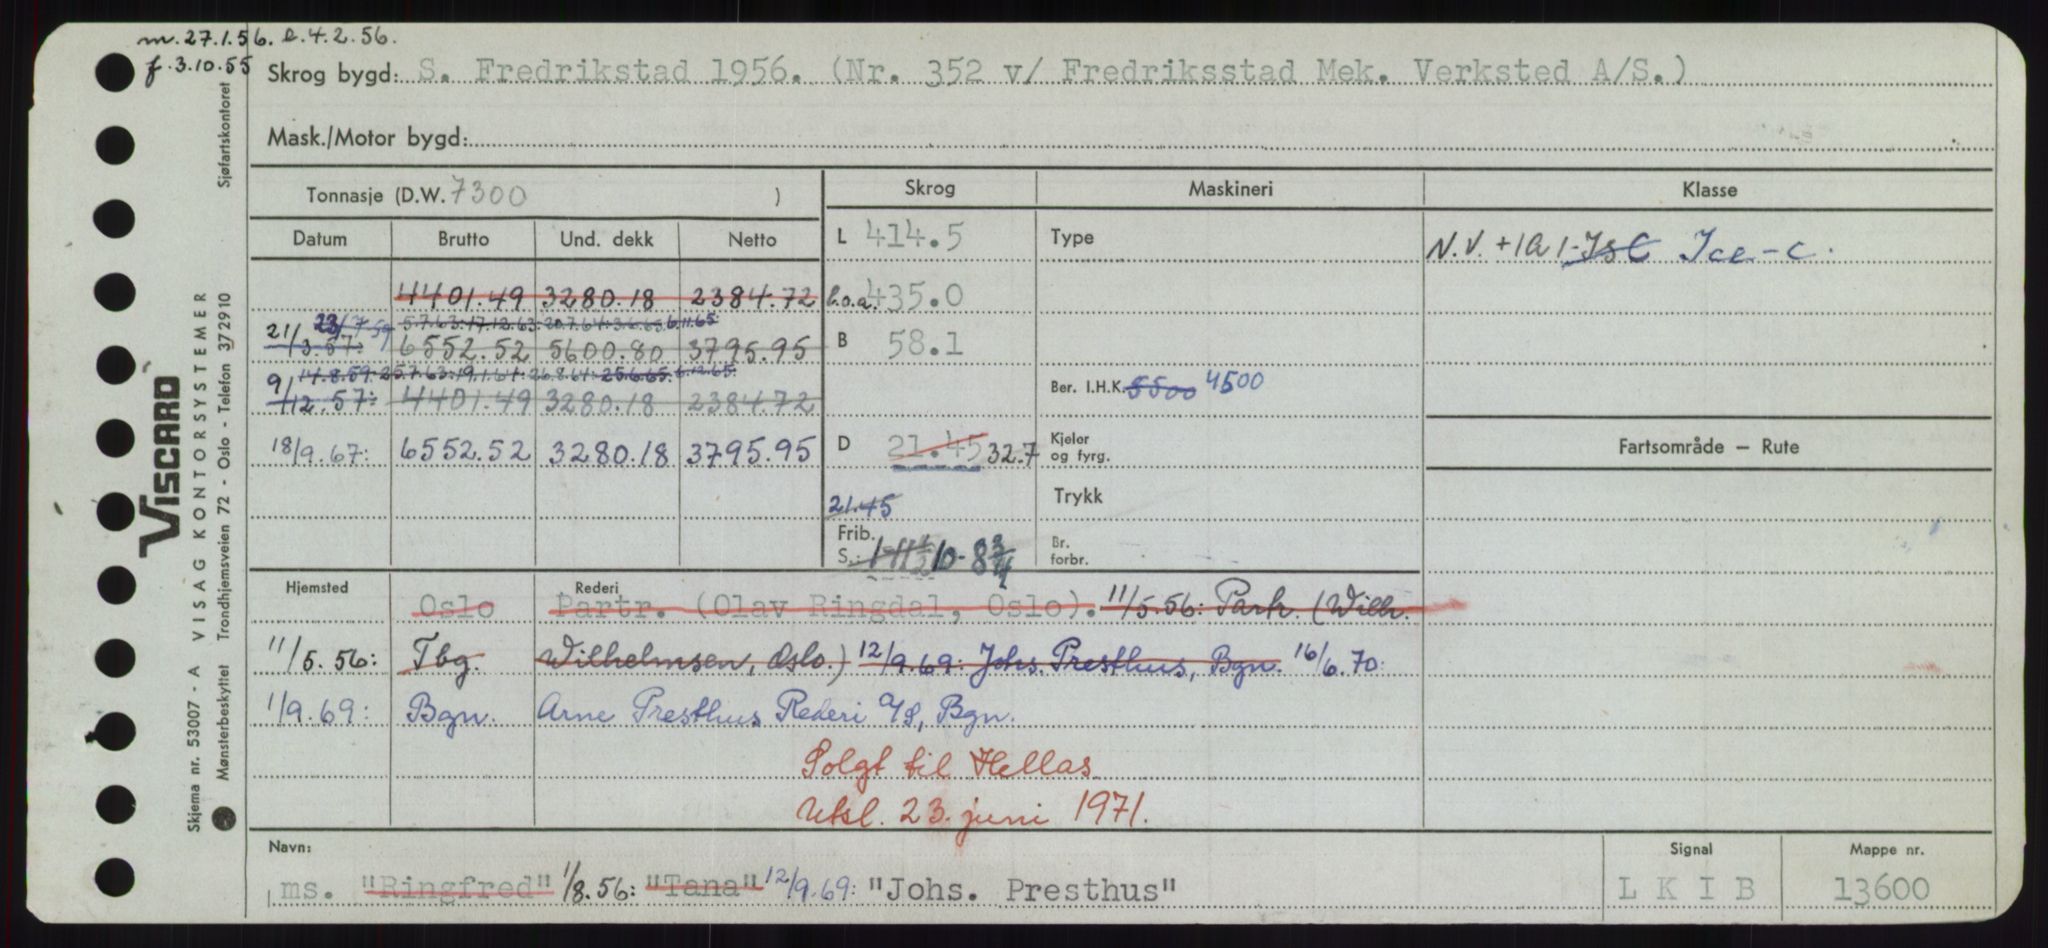 m. 27.1.56. l. 4.2.56.
f. 3.10.55
Skrog bygd: S. Fredrikstad 1956. (Nr. 352 v/ Fredriksstad Mek. Verksted A/S.)
Mask./Motor bygd:
Tonnasje (D.W. 7300 )
Skrog Maskineri Klasse
Datum Brutto Und. dekk Netto
L 414.5 Type N.V. +1A1-Is C Ice-C.
4401.49 3280.18 2384.72 l.o.a. 435.0
23/7 59 5.7.63. 17.12.63. 20.7.64. 3.6.65. 6.11.65
21/3.57: 6552.52 5600.80 3795.95 B 58.1
14.8.59. 25.7.63. 19.1.64. 26.8.64. 25.6.65. 6.12.65.
9/12.57: 4401.49 3280.18 2384.72 Ber. I.H.K. 5500 4500
18/9.67: 6552.52 3280.18 3795.95 D 21.45 32.7 Kjeler og fyrg. Fartsområde — Rute
21.45 Trykk
Frib. S.: 1-11 1/2 10-8 3/4 Br. forbr.
Hjemsted Rederi
Oslo Partr. (Olav Ringdal, Oslo). 11/5.56: Partr. (Wilh.
11/5.56: Tbg. Wilhelmsen, Oslo.) 12/9.69: Johs. Presthus, Bgn. 16/6.70:
1/9.69: Bgn. Arne Presthus Rederi A/S, Bgn.
Solgt til Hellas
Utsl. 23. juni 1971.
Navn: Signal Mappe nr.
ms. "Ringfred" 1/8.56: "Tana" 12/9.69: "Johs. Presthus" L K I B 13600
VISCARD
Skjema nr. 53007 - A VISAG KONTORSYSTEMER Sjøfartskontoret
Mønsterbeskyttet Trondhjemsveien 72 - Oslo - Telefon 372910